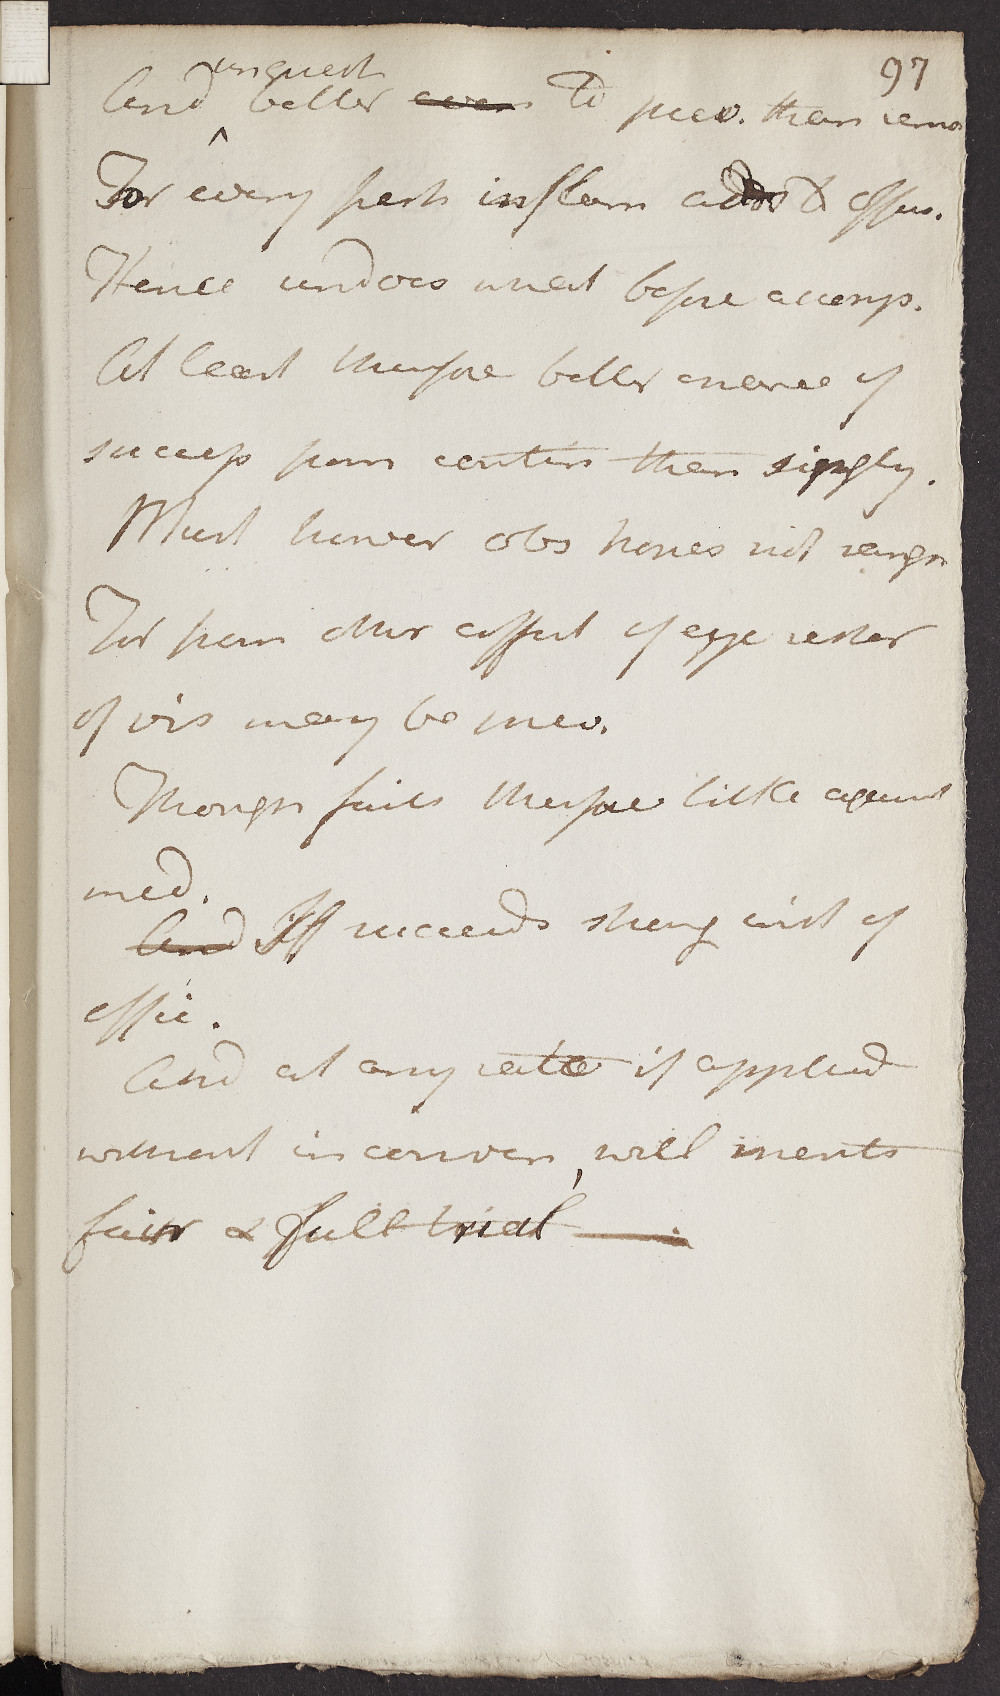 97
unquest
And better even to prev. than remo
For every fresh inflam adds to effus.
Hence undoes what before accomp.
At least therefore better chance of
success from contin than singly.
Must however obs hones not
For from other effect of
of vis may be prev.
Though fails therefore little against
med.
And If succeeds strong evid of
effic.
And at any rate if applied
without inconven, will merits
fair & full trial —.